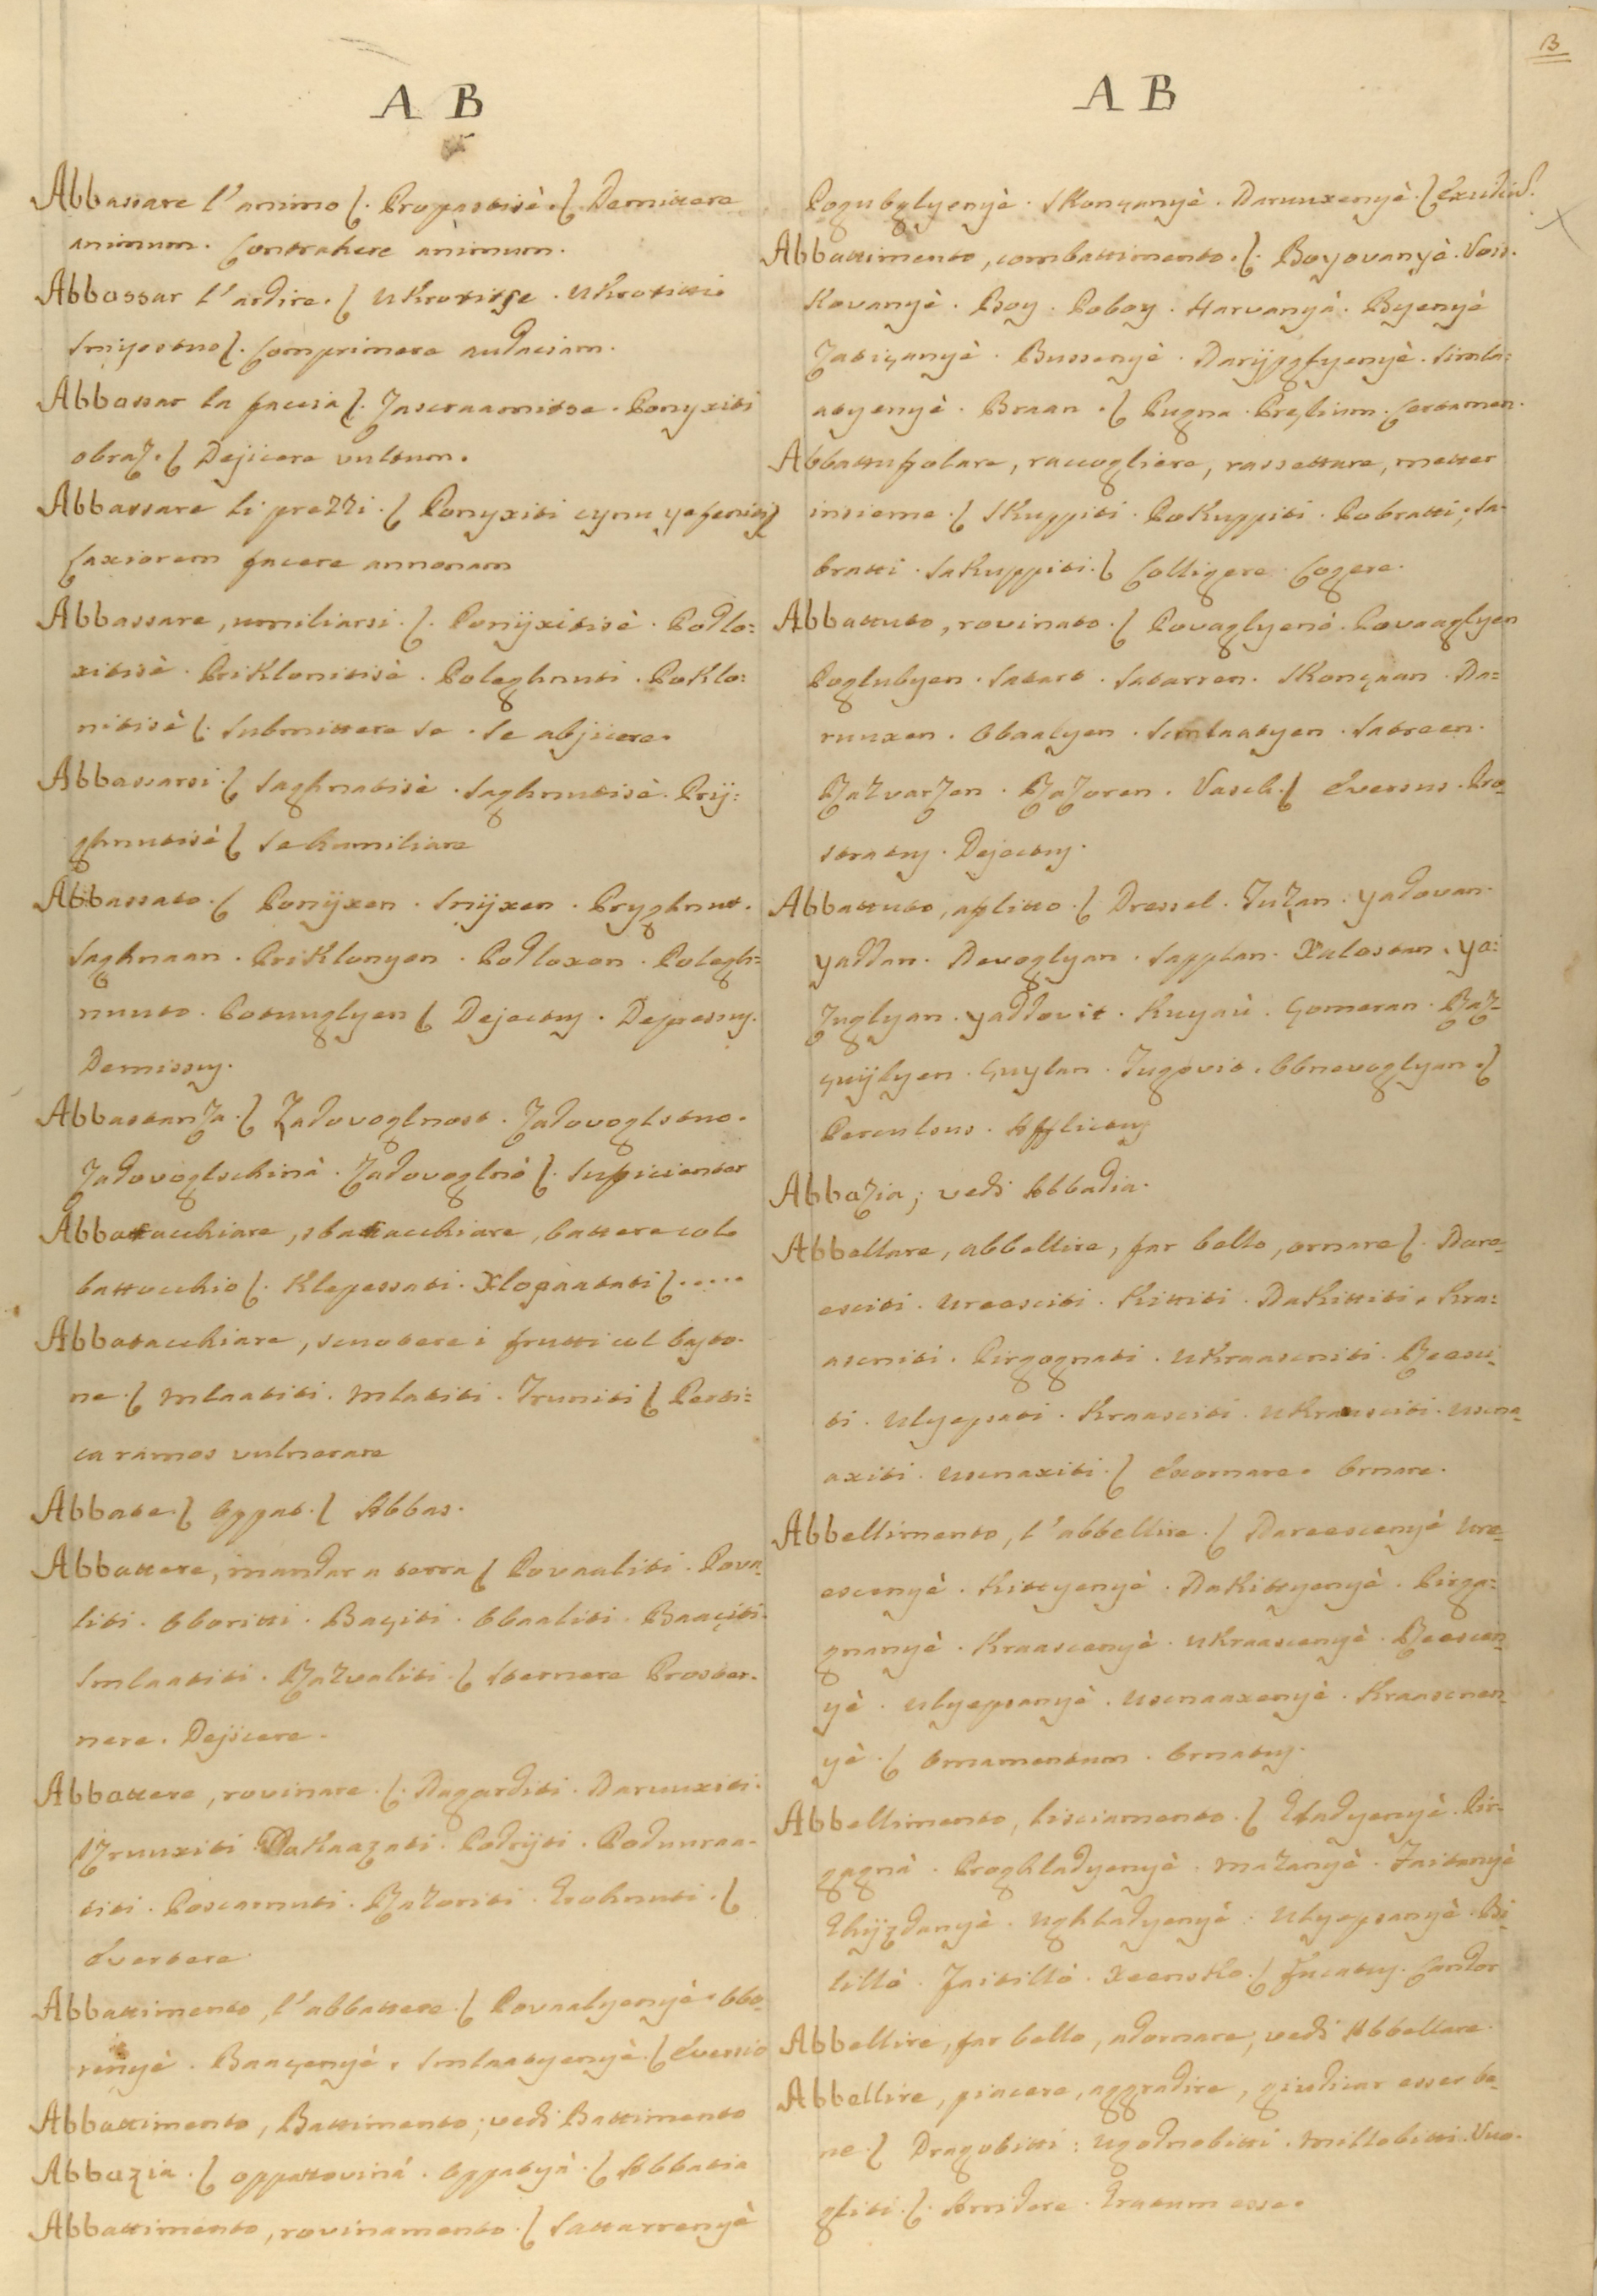 B
A B
Abbassare l'animo {. Propastisè. {. Demittere
animum. Contrahere animum.
Abbassar l'ardire. { Ukrotitse. Ukrotitti
Smiyostuo {. Comprimere audaciam.
Abbassar la faccia {. Zascraamitse. Ponyxiti
obraz. { Dejicere vultum.
Abbassare li prezzi. { Ponyxiti cynu
Laxiorem facere annonam
Abbassare, umiliarsi. {. Ponÿxitisè. Podlo=
xitisè. Priklonitisè. Poleghnuti. Poklo=
nitisè {. Submittere se. Se abjicere.
Abbassarsi. { Saghnatisè. Saghnutisè. Prij=
ghnutisè { Se humiliare
Abbassato. { Ponÿxen. Snÿxen. Pryghnut.
Saghnaan. Priklonyen. Podloxen. Polegh=
nuuto. Potuuglyen { Dejectus. Depressus.
Demissus.
Abbastanza. { Zadovoglnost. Zadovoglstuo.
Zadovoglschinà. Zadovoglnò {. Suficienter
Abbattacchiare, sbattacchiare, battere col
battocchio {. Klepessati. Xlopàatati {.....
Abbatacchiare, scuotere i frutti col basto-
ne. { Mlaatiti. Mlatiti. Truniti { Perti=
ca ramos vulnerare
Abbate. { Oppat. { Abbas.
Abbattere, mandar a terra { Povaaliti. Pova-
liti. Oboritti. Baçiti. Obaaliti. Baaçiti.
Smlaatiti. Razvaliti. { Sternere Proster-
nere. Dejicere.
Abbattere, rovinare. {. Dagarditi. Daruuxiti.
Izruuxiti Pokaazati. Podrÿti. Poduuraa-
titi. Poscamuti. Razoriti. {
Evertere.
Abbattimento, l'abbattere. { Povaalyenyè. Obo-
renyè. Baaçenyè. Smlaatyenyè. { Eversio
Abbattimento, Battimento; vedi Battimento
Abbazia. { Oppattovinà. Oppatyà. { Abbatia
Abbattimento, rovinamento. { Sattarrenyè
A B
Pogubglyenyè. Skonçanyè. Daruuxenyè. {
Abbattimento, combattimento. {. Boyovanyè. Voss-
kovanyè. Boy. Poboy. Harvanyà. Byenyè
Zabiçanyè. Bussenyè. Simla=
atyenyè. Braan. { Pugna. Prelium. Certamen.
Abbattufolare, raccogliere, rassettare, metter
insieme. { Skuppiti. Pokuppiti. Pobratti, Sa-
bratti. Sakuppiti. { Colligere. Cogere.
Abbattuto, rovinato. { Povaglyenò. Povaaglyen
Poglubyen. Satart. Satarren. Skonçaan. Da=
ruuxen. Obaalyen. Semlaatyen. Satreen.
Razvarzen. Razoren. Vasch. { Eversus. Pro-
stratus. Dejectus.
Abbattuto, aflitto. { Dressel. Tuzan. Yadovan.
Yaddan. Devoglyan. Sapplan. Xalostan. Yo=
zuglyan. Yaddovit. Kuyaù. Çomeran. Raz-
çuijlyen. Çuylan. Tugovit. Obnevoglyan. {
Perculsus. Afflictus
Abbazia; vedi Abbadia.
Abbellare, abbellire, far bello, ornare {. Dare-
esciti. Ureesciti. Kittiti. Dakittiti. Kra=
asniti. Pirgognati. Ukraascniti. Reesci-
ti. Ulyepsati. Kraasciti. Ukraasciti. Uscna-
axiti. Uscnaxiti. { Exornare. Ornare.
Abbellimento, l'abbellire. { Dareescenyè Ure-
escenyè. Kittyenyè. Dakittyenyè. Pirgo=
gnanyè. Kraascenyè. Ukraascenyè. Reescen-
yè. Ulyepsanyè. Uscnaaxenyè. Kraascnen-
yè. { Ornamentum. Ornatus.
Abbellimento, lisciamento. { Gladyenyè. Pir-
gagnà. Proghladyenyè. Mazanyè. Zaitanyè
Ghÿzdanyè. Ughladyenyè. Ulyepsanyè. Bi-
lillò. Zaitillò. Xeensko. { Fucatus. Candor
Abbellire, far bello, adornare; vedi Abbellare.
Abbellire, piacere, aggradire, giudicar esser be-
ne. { Dragobitti: Ugodnobitti. Millobitti. Vuo-
gliti. {. Arridere. Gratum esse.